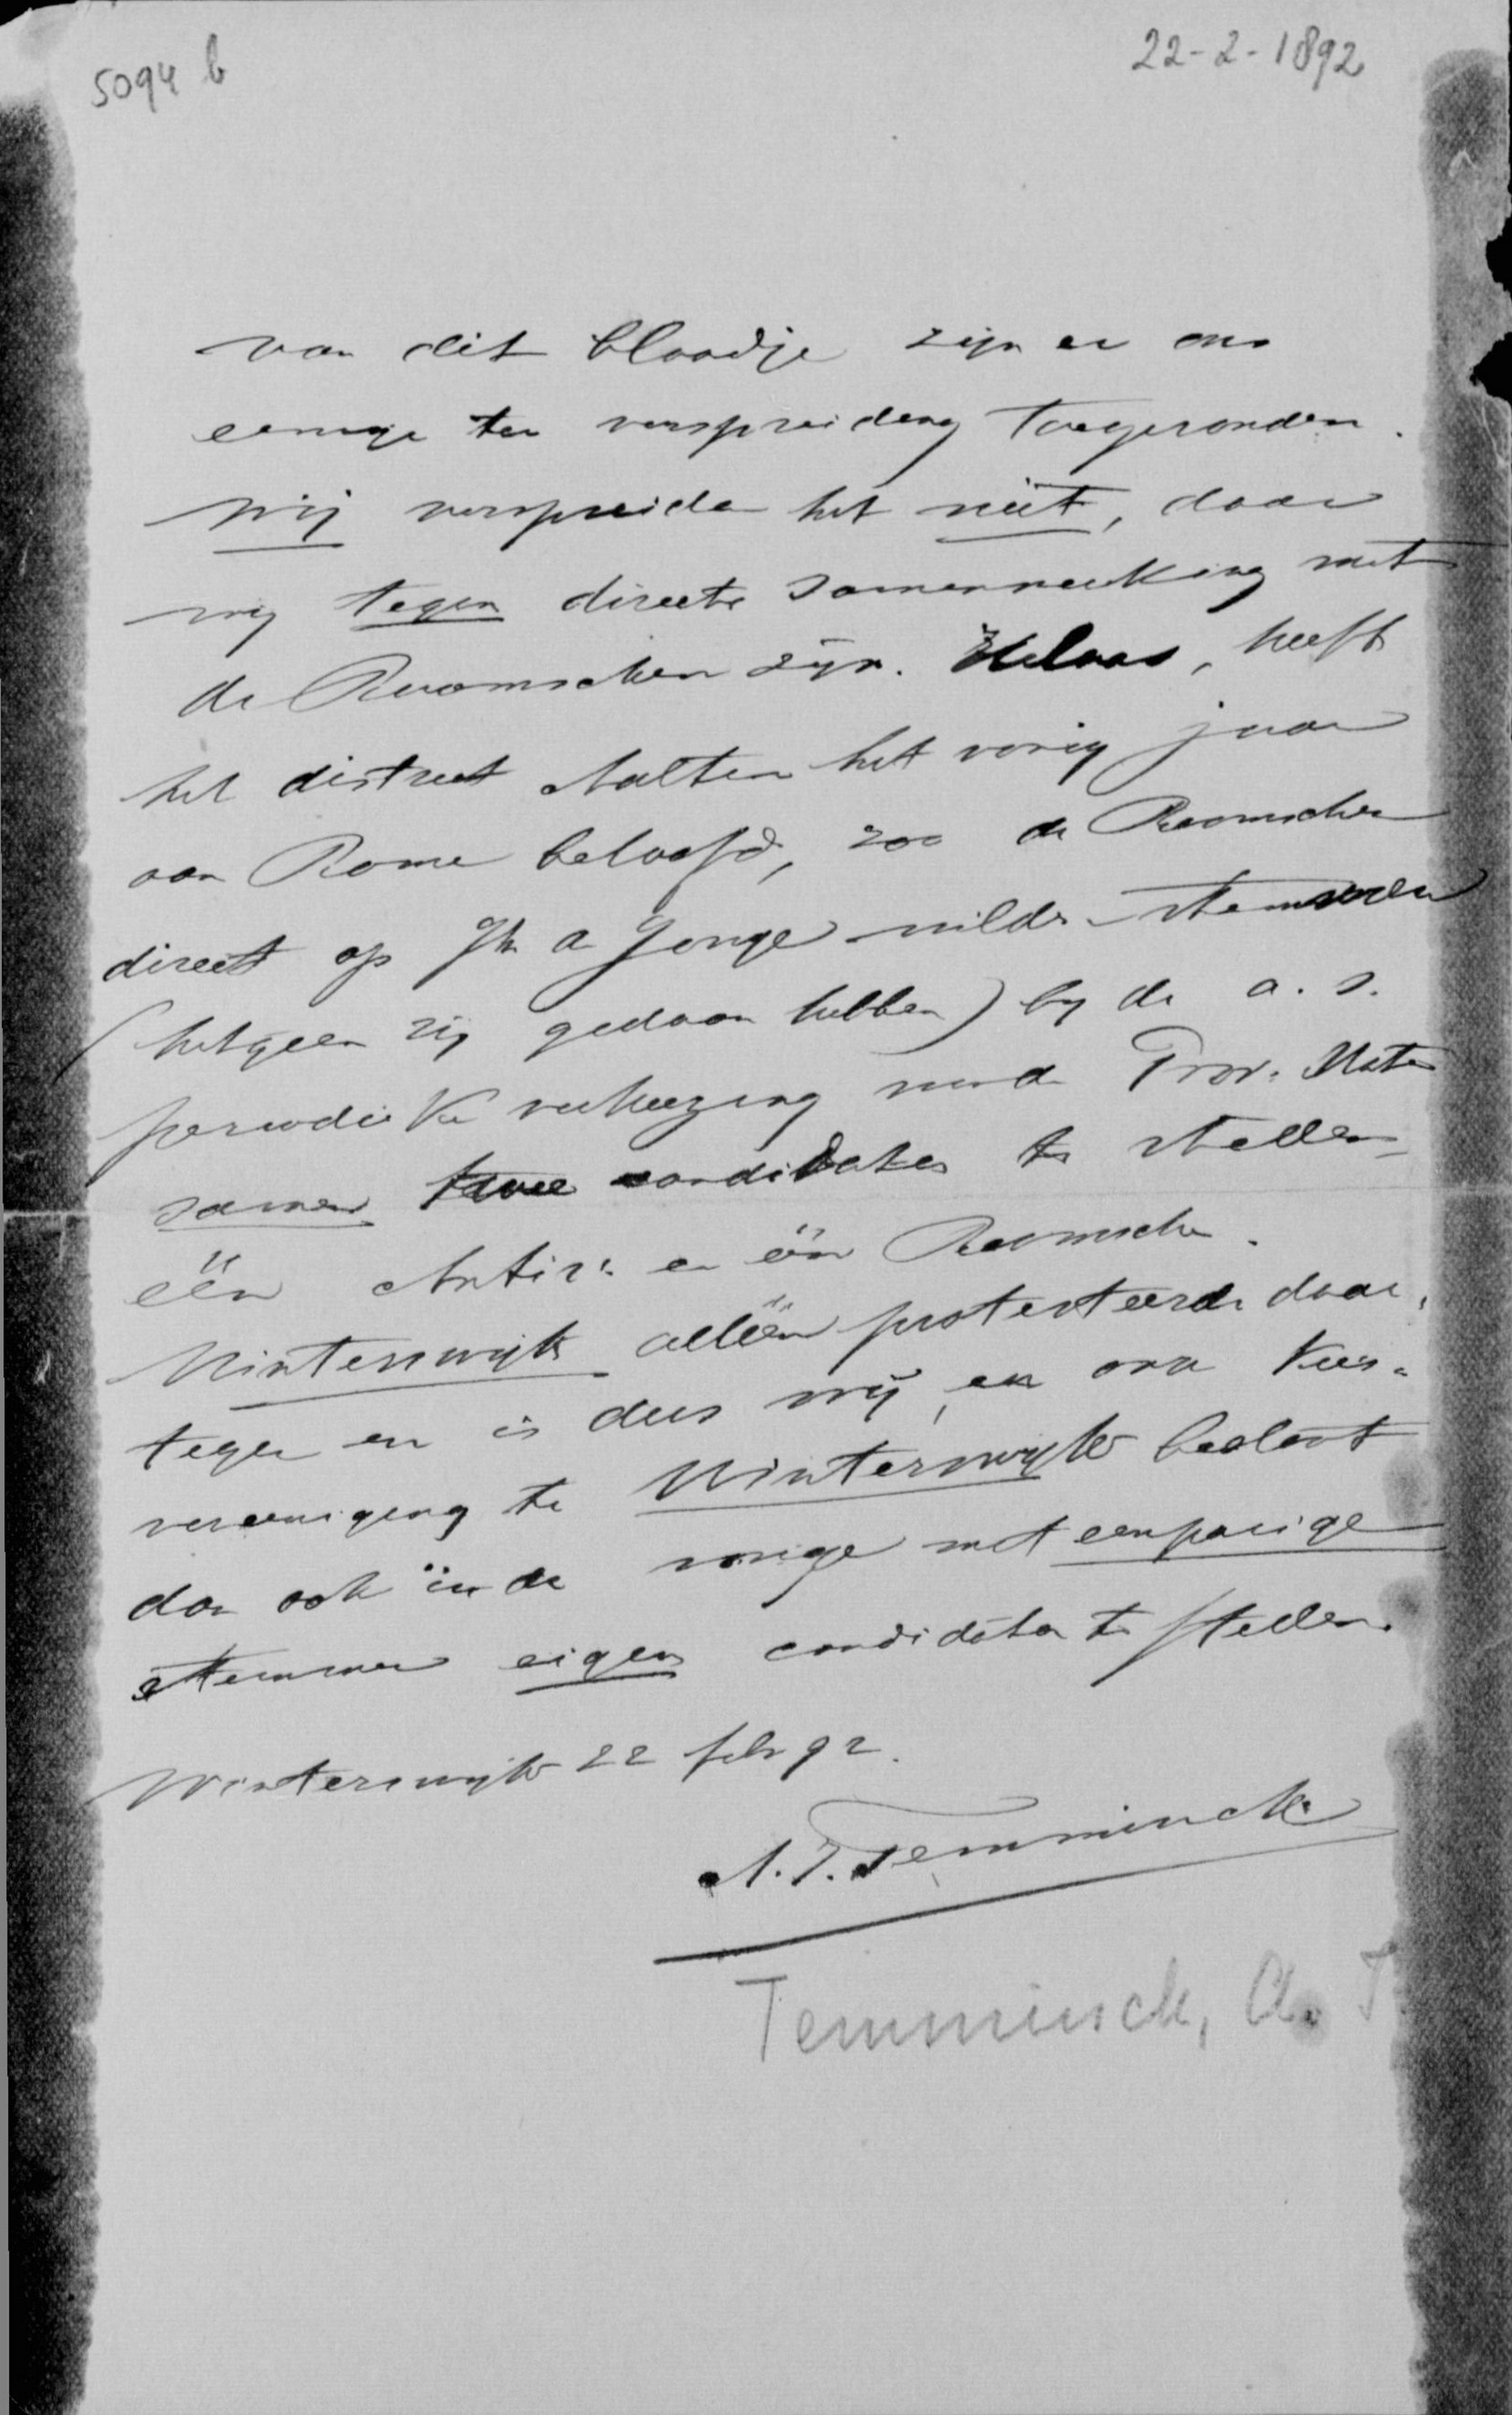 5094 b
22-2-1892
van dit blaadje zijn er ons
eenige ter verspreiding toegezonden.
Wij verspreiden het niet, daar
wij tegen directe samenwerking met
de Roomschen zijn. Helaas, heeft
het district Aalten het vorig jaar
aan Rome beloofd, zoo de Roomschen
direct op Jhr de Jonge wilden stemmen
(hetgeen zij gedaan hebben) bij de a.s.
periodieke verkiezing v/d Prov. Staten
samen twee candidaten te stellen
één Antir: en één Roomsche.
Winterswijk alléén protesteerde daar,
tegen en is dus vrij, en onze Kies-
vereeniging te Winterswijk besloot
dan ook in de vorige met eenparige
stemmen eigen candidaten te stellen.
Winterswijk 22 feb 92.
A. T. Temminck
Temminck, A. T.